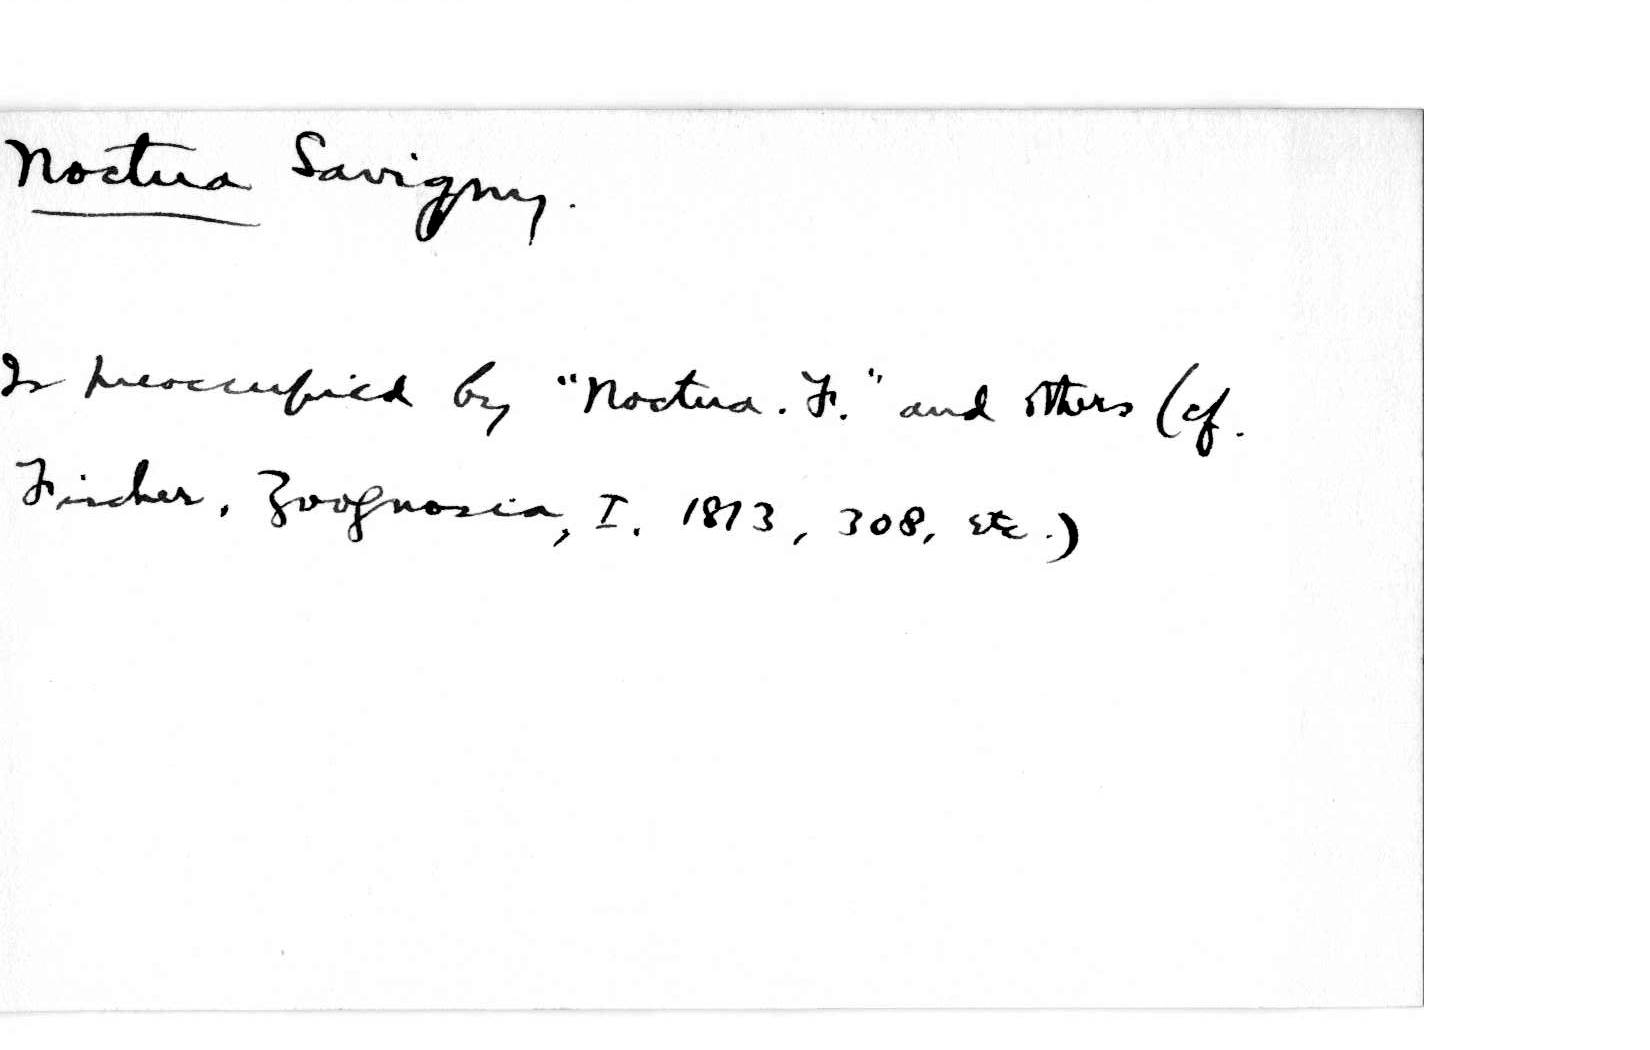 Noctua Savigny.
Is preoccupied by "Noctua. F." and others (cf.
Fischer, Zoognosia, I. 1813, 308, etc.)